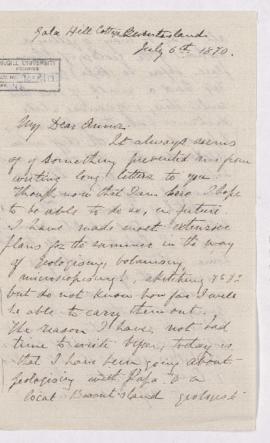 Gala Hill Cottage Burntisland.
July 6th 1870.
McGILL UNIVERSITY
ARCHIVES
My Dear Anna
It always seems
as if something prevented me from
writing long letters to you
though now that I am here I hope
to be able to do so, in future.
I have made most extensive
plans for the summer in the way
of Geologising, botanising
microscopising!, sketching &c &c
but do not know how far I will
be able to carry them out.
The reason I have not had
time to write before today is
that I have been going about
geologising with Papa & a
local Burntisland geologist